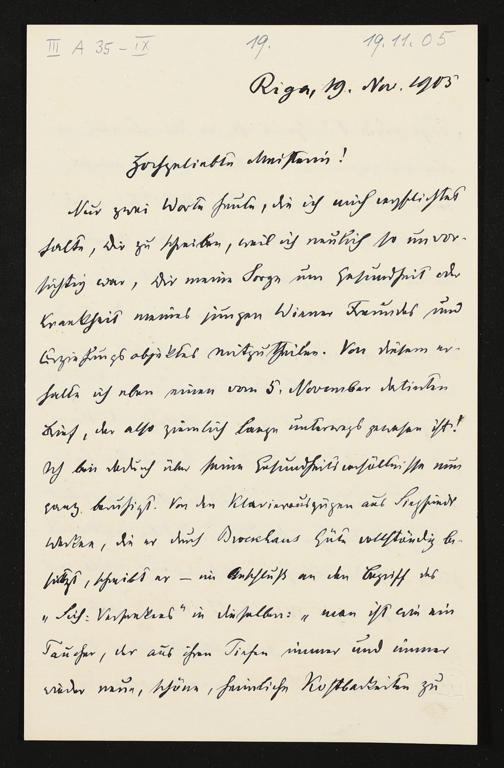 III A 35 - IX 19. 19.11.05
Riga, 19. Nov. 1905
Hochgeliebte Meisterin!
Nur zwei Worte heute, die ich mich verpflichtet
halte, Dir zu schreiben, weil ich neulich so unvor-
sichtig war, Dir meine Sorge um Gesundheit oder
Krankheit meines jungen Wiener Freundes und
Erziehungsobjektes mitzutheilen. Von diesem er-
halte ich eben einen vom 5. November datirten
Brief, der also ziemlich lange unterwegs gewesen ist!
Ich bin dadurch über seine Gesundheitsverhältnisse nun
ganz beruhigt. Von den Klavierauszügen aus Siegfrieds
Werken, die er durch Brockhaus Güte vollständig be-
sitzt, schreibt er – im Anschluß an den Begriff des
„Sich-Versenkens" in dieselben: „man ist wie ein
Taucher, der aus ihren Tiefen immer und immer
wieder neue, schöne, heimliche Kostbarkeiten zu